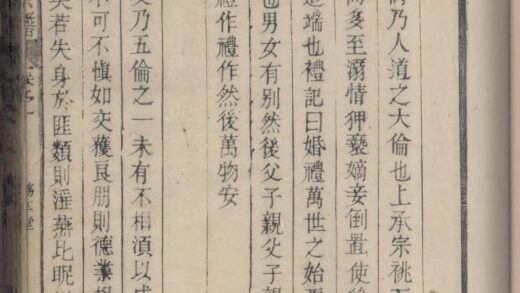 乃人道之大倫也上承宗祧
多至溺情狎褻嫡妾倒置使
造端也禮記曰婚禮萬世之始
也男女有別然後父子親父子親
禮作禮作然後萬物安
友乃五倫之一未有不相湏以成
不可不慎如交獲良朋則德業相
矣若失身於匪類則淫燕比昵
譜 卷之一 堂